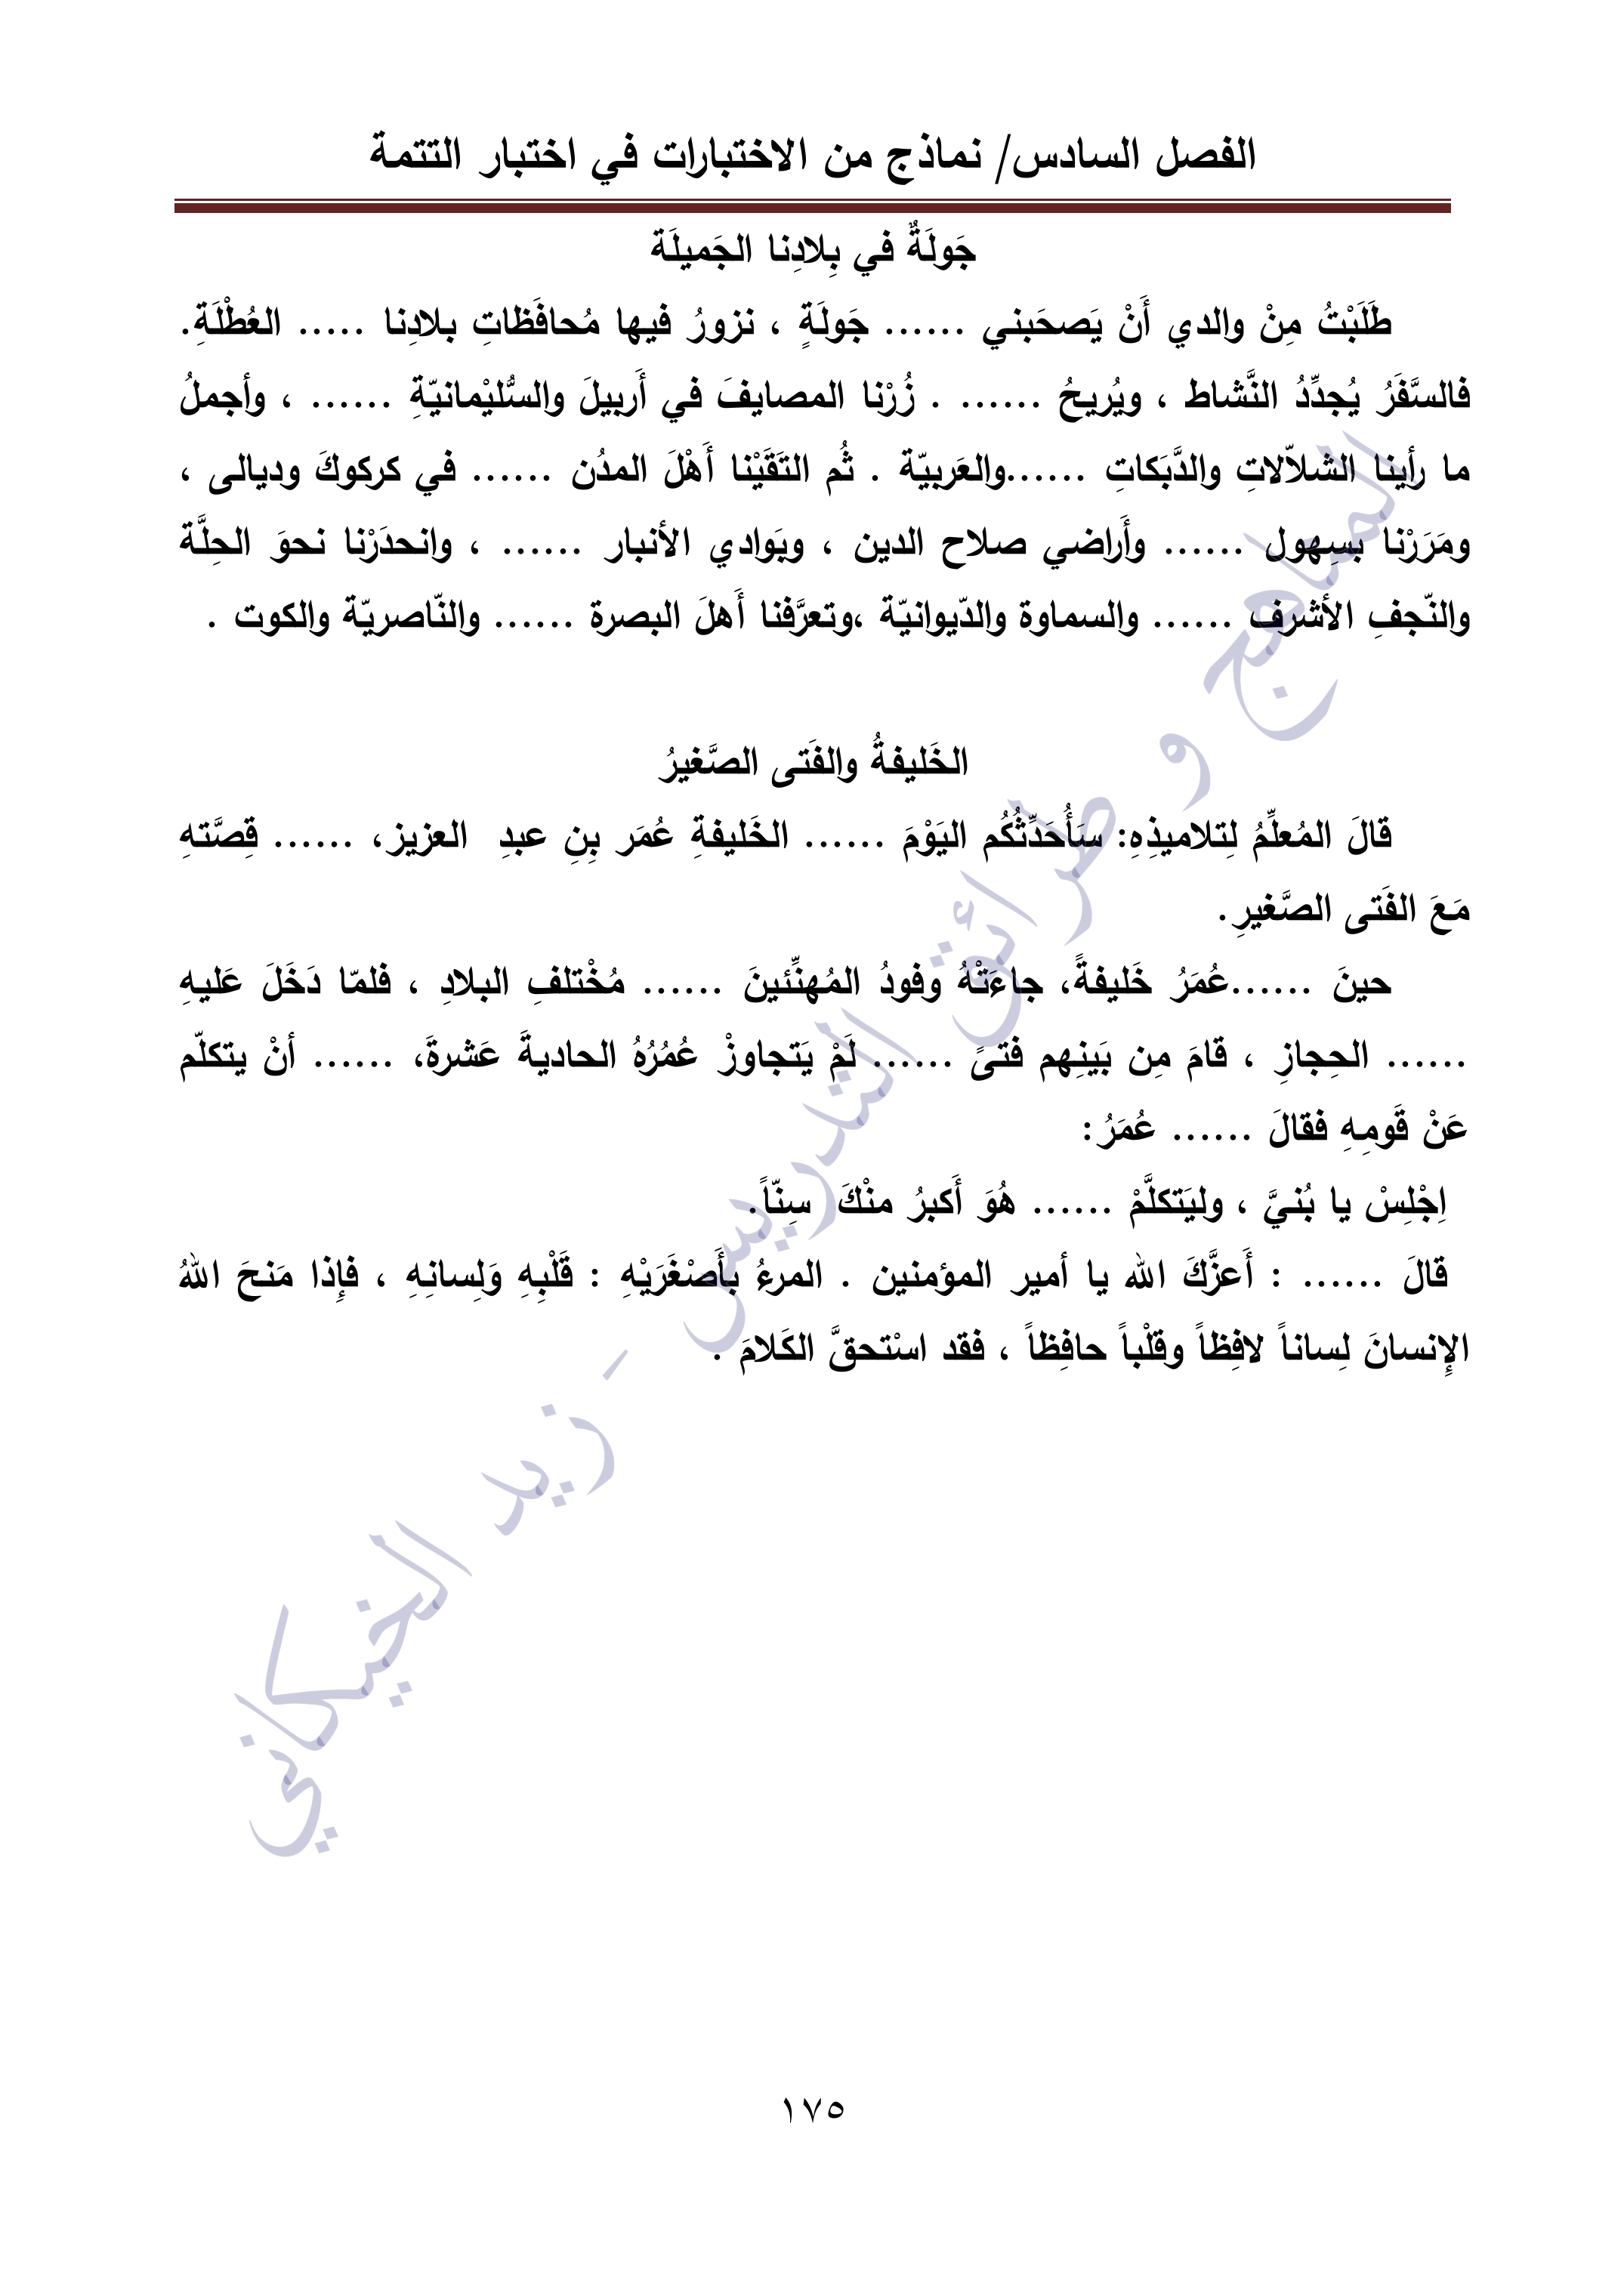 الفصل السادس/ نماذج من الاختبارات في اختبار التتمة
جَولَةٌ في بِلادِنا الجَميلَة
طَلَبْتُ مِنْ والدي أَنْ يَصحَبني ...... جَولَةٍ ، نزورُ فيها مُحافَظاتِ بلادِنا ..... العُطْلَةِ.
فالسَّفَرُ يُجدِّدُ النَّشاط ، ويُريحُ ...... . زُرْنا المصايفَ في أَربيلَ والسُّليْمانيّةِ ...... ، وأجملُ
ما رأينا الشلاّلاتِ والدَّبَكاتِ ......والعَربيّة . ثُم التَقَيْنا أَهْلَ المدُن ...... في كركوكَ وديالى ،
ومَرَرْنا بسِهول ...... وأَراضي صلاح الدين ، وبَوادي الأنبار ...... ، وانحدَرْنا نحوَ الحِلَّة
والنّجفِ الأشرف ...... والسماوة والدّيوانيّة ،وتعرَّفنا أَهلَ البصرة ...... والنّاصريّة والكوت .
الخَليفةُ والفَتى الصَّغيرُ
قالَ المُعلِّمُ لِتلاميذِهِ: سَأُحَدِّثُكُم اليَوْمَ ...... الخَليفةِ عُمَر بِنِ عبدِ العزيز، ...... قِصَّتهِ
مَعَ الفَتى الصَّغيرِ.
حينَ ......عُمَرُ خَليفةً، جاءَتْهُ وفودُ المُهنِّئينَ ...... مُخْتلفِ البلادِ ، فلمّا دَخَلَ عَليهِ
...... الحِجازِ ، قامَ مِن بَينِهم فتىً ...... لَمْ يَتجاوزْ عُمُرُهُ الحاديةَ عَشرةَ، ...... أنْ يتكلّم
عَنْ قَومِهِ فقالَ ...... عُمَرُ:
اِجْلِسْ يا بُنيَّ ، وليَتكلَّمْ ...... هُوَ أَكبرُ منْكَ سِنّاً.
قالَ ...... : أَعزَّكَ الله يا أمير المؤمنين . المرءُ بأَصْغَرَيْهِ : قَلْبِهِ وَلِسانِهِ ، فإِذا مَنحَ اللهُ
الإِنسانَ لِساناً لافِظاً وقلْباً حافِظاً ، فقد اسْتحقَّ الكَلامَ .
المناهج و طرائق التدريس - زيد الخيكاني
١٧٥